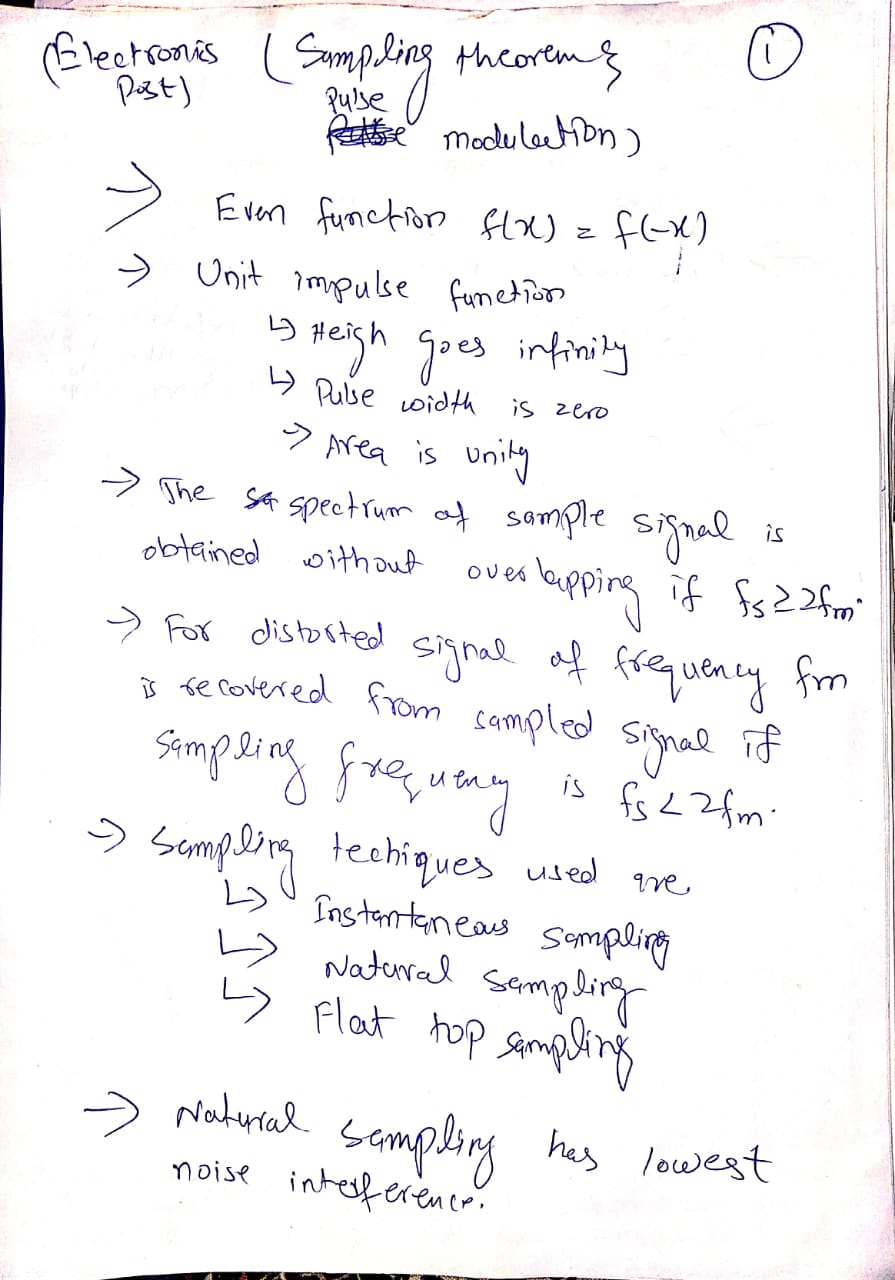 (Electronis ( Sampling theorem & ①
Post) Pulse
modulation)
→ Even function f(x) = f(-x)
→ Unit impulse function
↳ Heigh goes infinity
↳ Pulse width is zero
→ Area is unity
→ The spectrum of sample signal is
obtained without overlapping if fs ≥ 2fm.
→ For distorted signal of frequency fm
is recovered from sampled signal if
sampling frequency is fs < 2fm.
→ Sampling techiques used are
↳ Instantaneous sampling
↳ Natural sampling
↳ Flat top sampling
→ Natural sampling has lowest
noise interference.